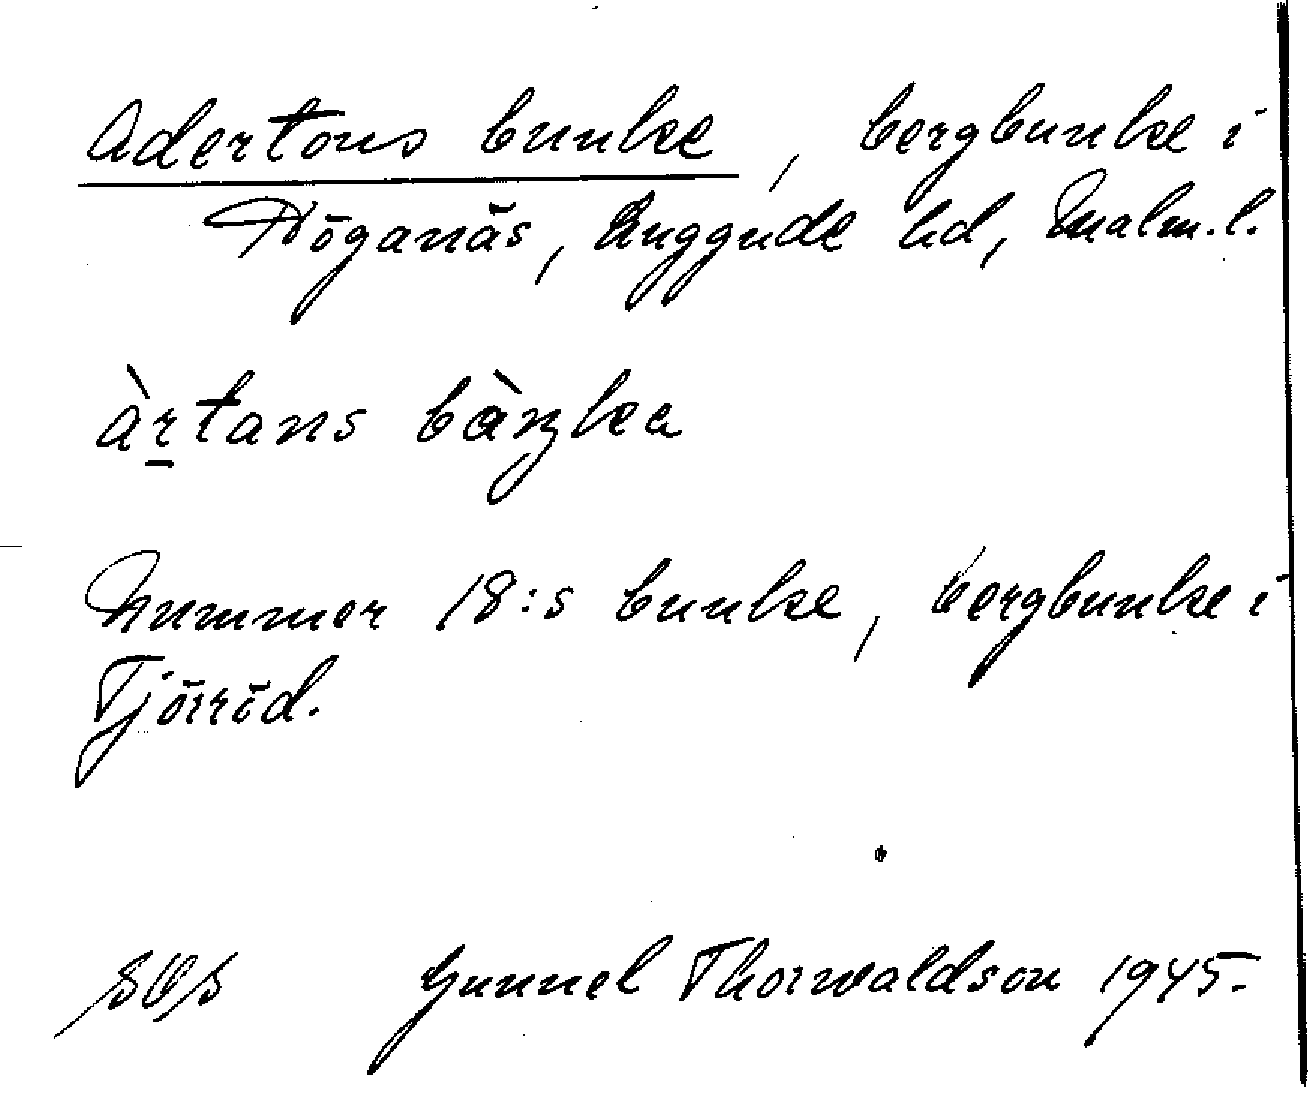 Adertons bunke, bergbunke i
Höganäs, Luggude hd, Malm. l.
àr̲tans bàŋka
Nummer 18:s bunke, bergbunke i
Tjörröd.
Gunnel Thorwaldson 1945.